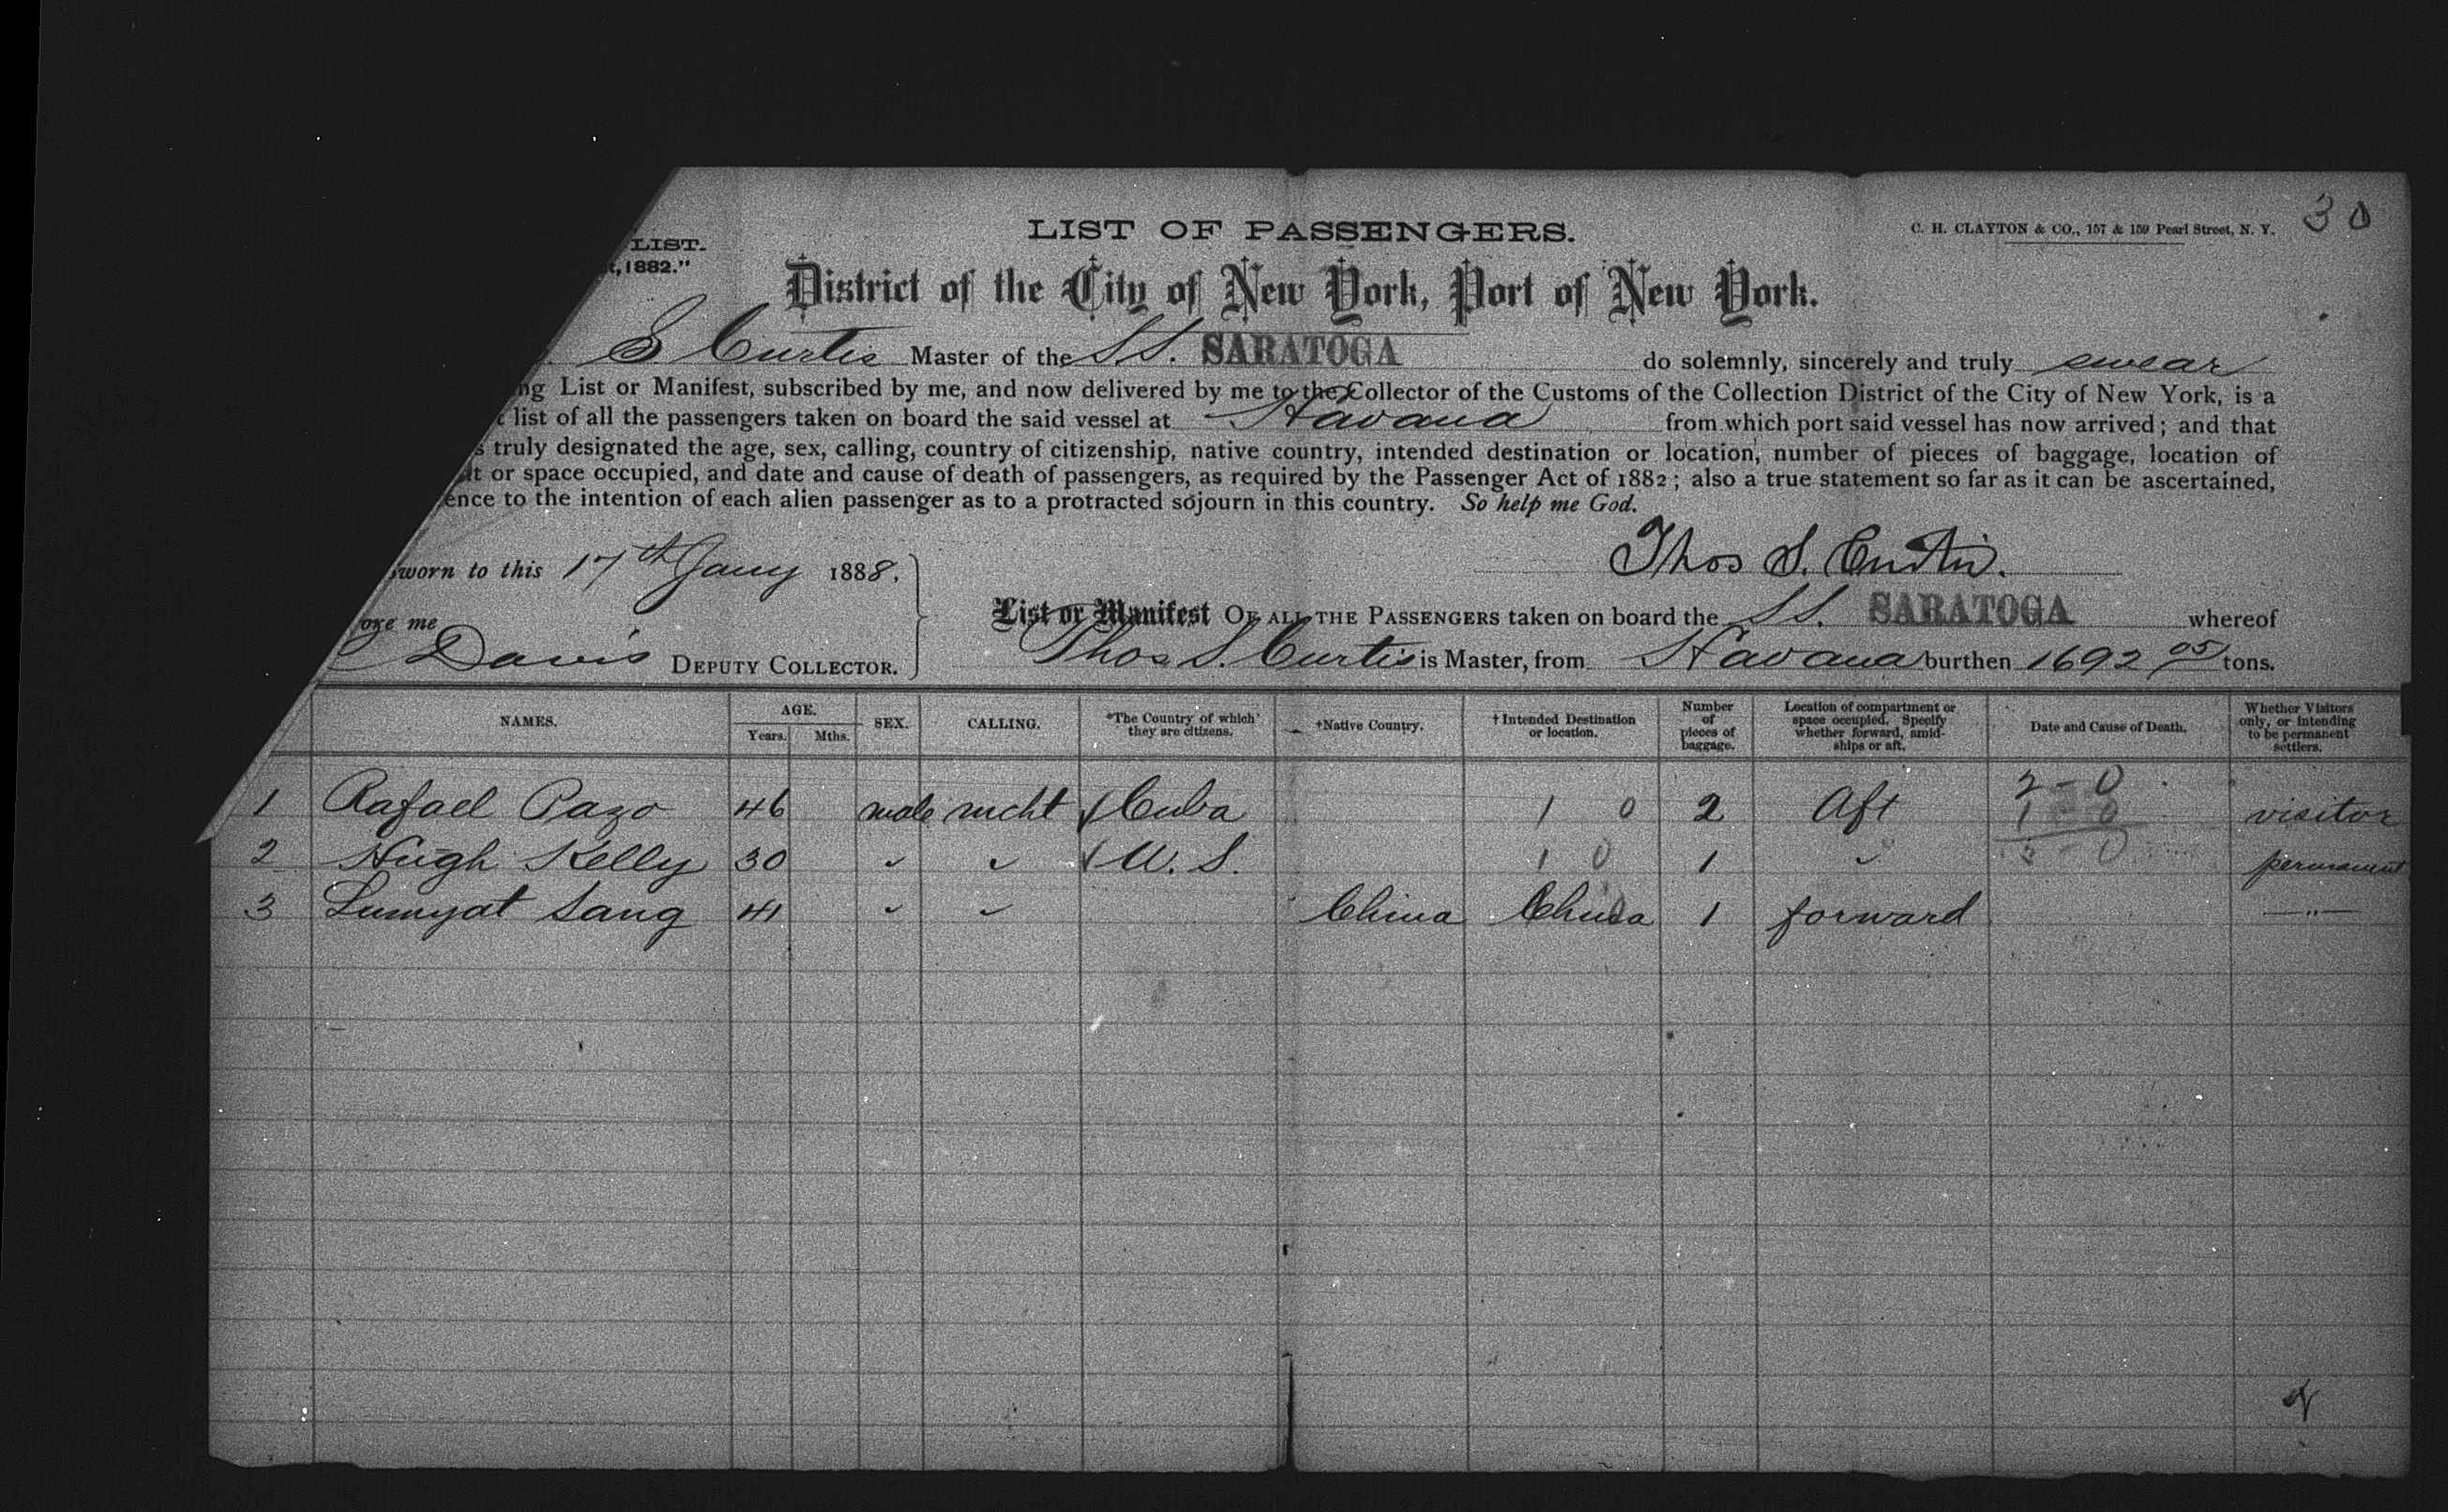 LIST OF PASSENGERS.
C. H. CLAYTON & CO., 157 & 159 Pearl Street, N. Y.
30
LIST.
1882."
District of the City of New York, Port of New York.
S Curtis Master of the SS. SARATOGA do solemnly, sincerely and truly swear
List or Manifest, subscribed by me, and now delivered by me to the Collector of the Customs of the Collection District of the City of New York, is a
list of all the passengers taken on board the said vessel at Havana from which port said vessel has now arrived; and that
truly designated the age, sex, calling, country of citizenship, native country, intended destination or location, number of pieces of baggage, location of
or space occupied, and date and cause of death of passengers, as required by the Passenger Act of 1882; also a true statement so far as it can be ascertained,
ence to the intention of each alien passenger as to a protracted sojourn in this country. So help me God.
sworn to this 17th Jany 1888.
Thos S. Curtis.
ore me
Davis DEPUTY COLLECTOR.
List or Manifest OF ALL THE PASSENGERS taken on board the SS. SARATOGA whereof
Thos S. Curtis is Master, from Havana burthen 1692 05/ tons.
NAMES. AGE. Years. Mths. SEX. CALLING. *The Country of which they are citizens. †Native Country. †Intended Destination or location. Number of pieces of baggage. Location of compartment or space occupied. Specify whether forward, amidships or aft. Date and Cause of Death. Whether Visitors only, or intending to be permanent settlers.
1 Rafael Pazo 46 male mcht Cuba 1 0 2 Aft 2-0 1 0 visitor
2 Hugh Kelly 30 " " U. S. 1 0 1 " 3-0 permanent
3 Lumyat Sang 41 " " China China 1 forward "